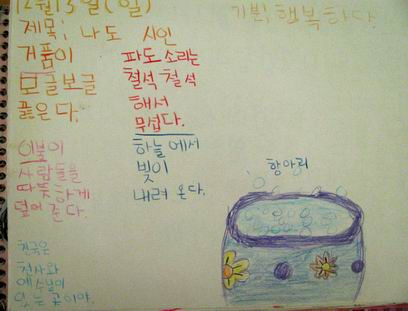 12월 13일(일)
기분; 행복하다.
제목; 나도 시인
거품이
모글보글
끓은다.
파도 소리는
철석 철석
해서
무섭다.
이불이
사람들을
따뜻하게
덮어 준다.
하늘에서
빛이
내려 온다.
천국은
천사와
예수님이
있는 곳이야.
항아리